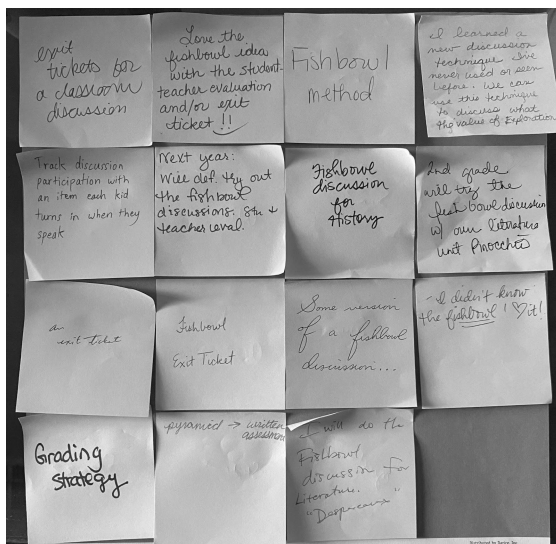 exit
tickets for
a classroom
discussion
Love the
fishbowl idea
with the student-
teacher evaluation
and/or exit
ticket!!
Fishbowl
method
I learned a
new discussion
technique I've
never used or seen
before. We can
use this technique
to discuss what
the value of Exploration
Track discussion
participation with
an item each kid
turns in when they
speak
Next year:
Will def. try out
the fishbowl
discussions. Stu +
teacher eval.
Fishbowl
discussion
for
History
2nd grade
will try the
fishbowl discussion
w/ our literature
unit Pinocchio
an
exit ticket
Fishbowl
Exit Ticket
Some version
of a fishbowl
discussion...
- I didn't know
the fishbowl! ♡ it!
Grading
strategy
pyramid → written
assessment
I will do the
Fishbowl
discussion for
Literature.
"Despereaux"